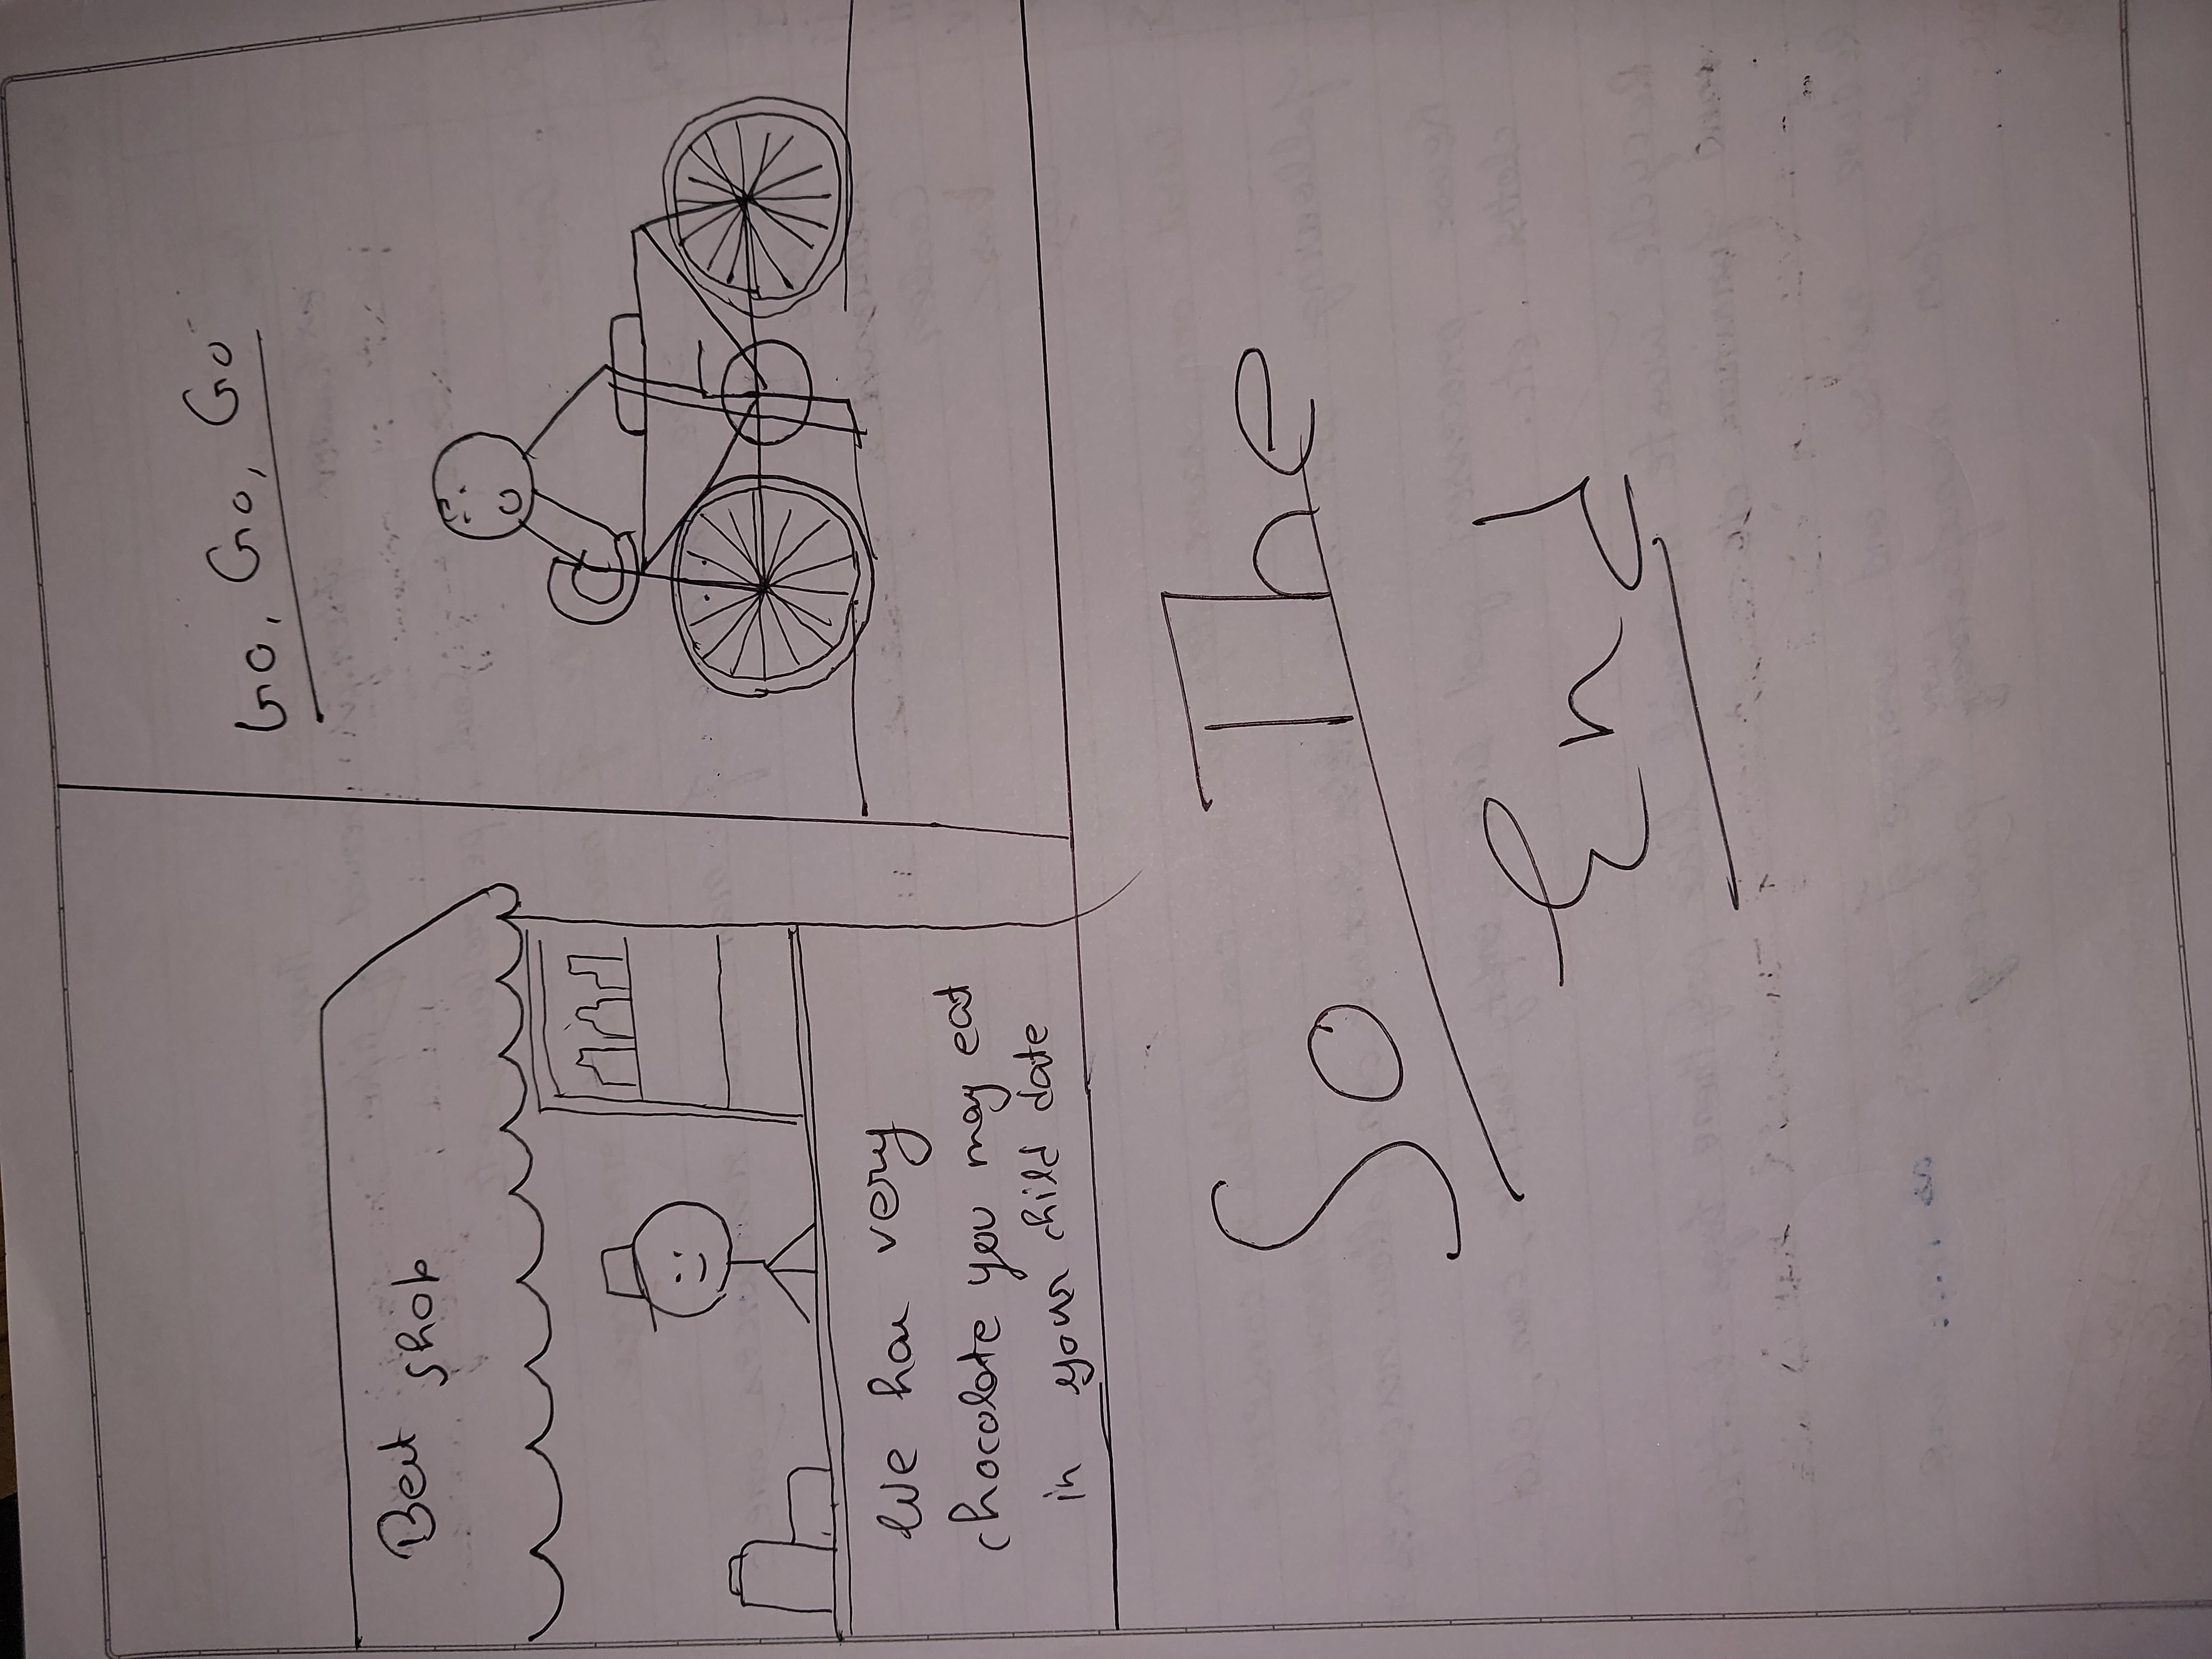 Best shop
We have very
chocolate you may eat
in your child date
Go, Go, Go
So The
End